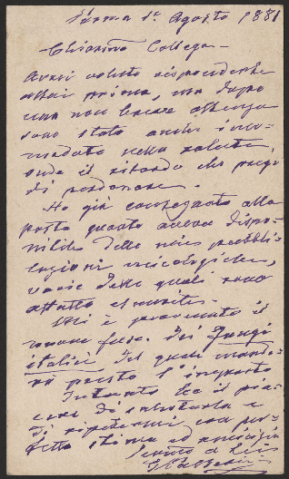 Parma 1° Agosto 1881
Chiarissimo Collega -
Avrei voluto rispondere
assai prima, ma dopo
una non breve assenza
sono stato anche inco-
modato nella salute,
onde il ritardo che prego
di perdonare.
Ho già consegnato alla
posta quanto aveva dispo-
nibile delle mie pubbli-
cazioni micologiche,
varie delle quali sono
affatto esaurite.
Mi è pervenuto il
nuovo fasc. dei Funghi
italici del quale mande-
rò presto l'importo
Intanto ho il pia-
cere di salutarla e
di ripetermi con per-
fetta stima ed amicizia
devmo a Lei
G Passerini